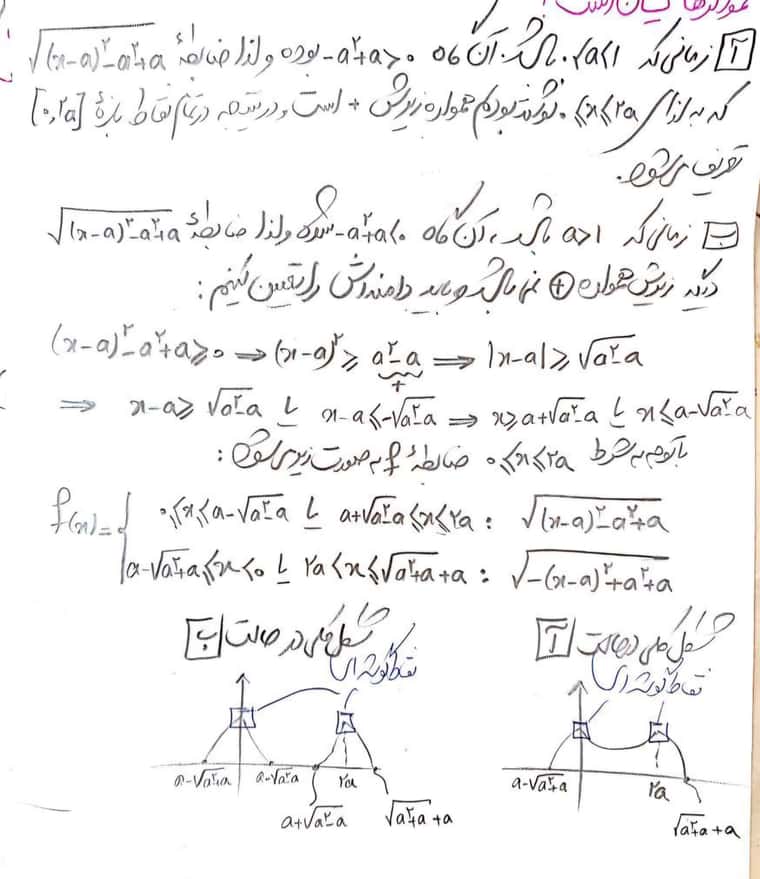 آ زمانی که ۰<a<۱ باشد. آن گاه -a²+a>۰ بوده و لذا ضابطهٔ √((x-a)²-a²+a)
که به ازای ۰≤x≤۲a نوشته بودیم همواره زیرش + است و در نتیجه در تمام نقاط بازهٔ [۰,۲a]
تعریف می‌شود.
ب زمانی که a>۱ باشد، آن گاه -a²+a<۰ شده و لذا ضابطهٔ √((x-a)²-a²+a)
دیگه زیرش همواره + نمی‌باشد و باید دامنه‌اش را تعیین کنیم:
(x-a)²-a²+a≥۰ ⟹ (x-a)²≥a²-a ⟹ |x-a|≥√(a²-a)
+
⟹ x-a≥√(a²-a) یا x-a≤-√(a²-a) ⟹ x≥a+√(a²-a) یا x≤a-√(a²-a)
با توجه به شرط ۰≤x≤۲a ضابطهٔ f به صورت زیر می‌شود:
f(x)= { ۰≤x≤a-√(a²-a) یا a+√(a²-a)≤x≤۲a : √((x-a)²-a²+a)
a-√(a²+a)≤x<۰ یا ۲a<x≤√(a²+a)+a : √(-(x-a)²+a²+a)
شکل کلی در حالت آ
نقاط گوشه‌ای
a-√(a²+a) ۲a √(a²+a)+a
شکل کلی در حالت ب
نقاط گوشه‌ای
a-√(a²+a) a-√(a²-a) a+√(a²-a) ۲a √(a²+a)+a